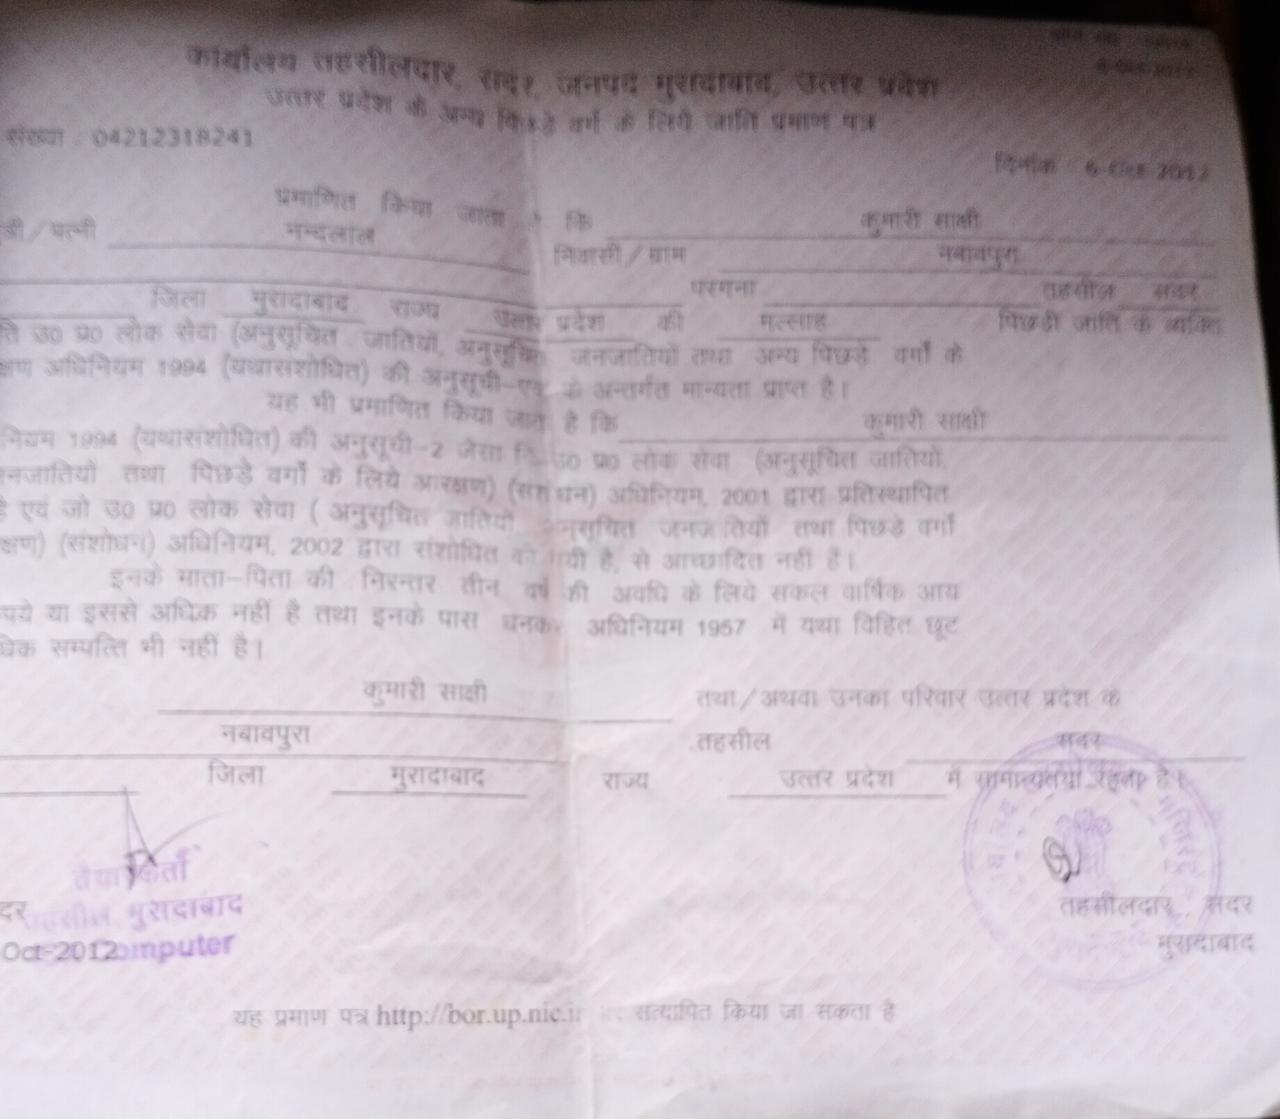 कार्यालय तहसीलदार, सदर, जनपद मुरादाबाद, उत्तर प्रदेश
उत्तर प्रदेश के अन्य पिछड़े वर्ग के लिये जाति प्रमाण पत्र
संख्या : 04212318241
दिनांक : 6-Oct-2012
प्रमाणित किया जाता है कि कुमारी साक्षी
त्री/पत्नी नन्दलाल निवासी/ग्राम नबावपुरा
परगना तहसील सदर
जिला मुरादाबाद राज्य उत्तर प्रदेश की मल्लाह पिछड़ी जाति के व्यक्ति
ति उ0 प्र0 लोक सेवा (अनुसूचित जातियों, अनुसूचित जनजातियों तथा अन्य पिछड़े वर्गों के
क्षण अधिनियम 1994 (यथासंशोधित) की अनुसूची-एक के अन्तर्गत मान्यता प्राप्त है।
यह भी प्रमाणित किया जाता है कि कुमारी साक्षी
नियम 1994 (यथासंशोधित) की अनुसूची-2 जैसा कि उ0 प्र0 लोक सेवा (अनुसूचित जातियों,
नजातियों तथा पिछड़े वर्गों के लिये आरक्षण) (संशोधन) अधिनियम, 2001 द्वारा प्रतिस्थापित
है एवं जो उ0 प्र0 लोक सेवा ( अनुसूचित जातियों, अनुसूचित जनजातियों तथा पिछड़े वर्गों
क्षण) (संशोधन) अधिनियम, 2002 द्वारा संशोधित की गयी है, से आच्छादित नहीं है।
इनके माता-पिता की निरन्तर तीन वर्ष की अवधि के लिये सकल वार्षिक आय
पये या इससे अधिक नहीं है तथा इनके पास धनकर अधिनियम 1957 में यथा विहित छूट
धिक सम्पत्ति भी नहीं है।
कुमारी साक्षी तथा/अथवा उनका परिवार उत्तर प्रदेश के
नबावपुरा तहसील सदर
जिला मुरादाबाद राज्य उत्तर प्रदेश में सामान्यतया रहता है।
तैयारकर्ता
दर तहसील मुरादाबाद
Oct-2012 omputer
तहसीलदार, सदर
मुरादाबाद
यह प्रमाण पत्र http://bor.up.nic.in पर सत्यापित किया जा सकता है